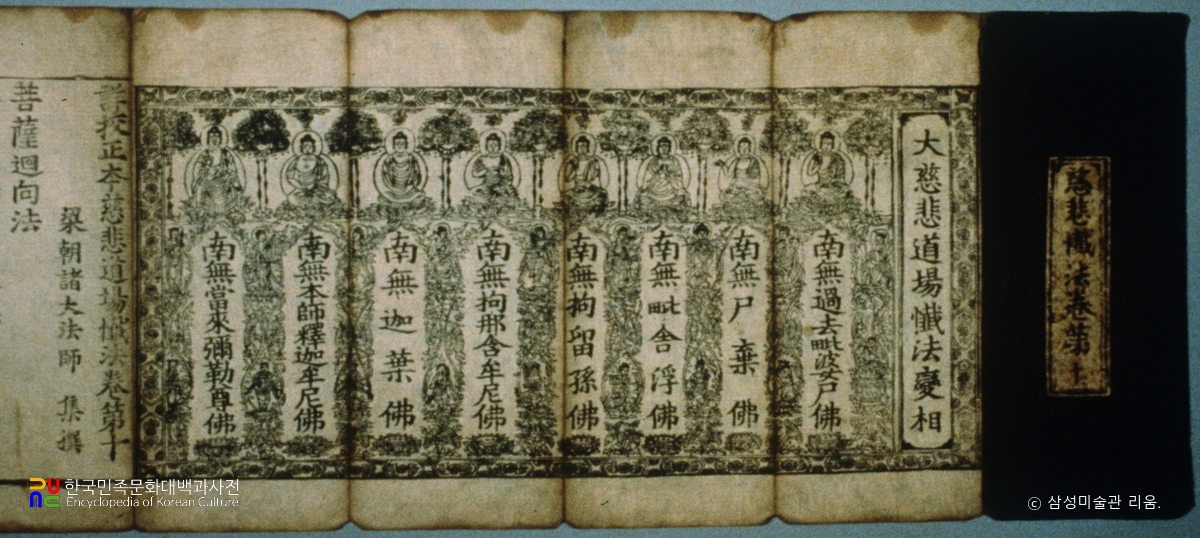 慈悲懺法卷第十
大慈悲道場懺法變相
南無過去毗婆尸佛
南無尸棄佛
南無毗舍浮佛
南無拘留孫佛
南無拘那含牟尼佛
南無迦葉佛
南無本師釋迦牟尼佛
南無當來彌勒尊佛
詳校正本慈悲道場懺法卷第十
梁朝諸大法師 集撰
菩薩迴向法
한국민족문화대백과사전
Encyclopedia of Korean Culture
ⓒ 삼성미술관 리움.